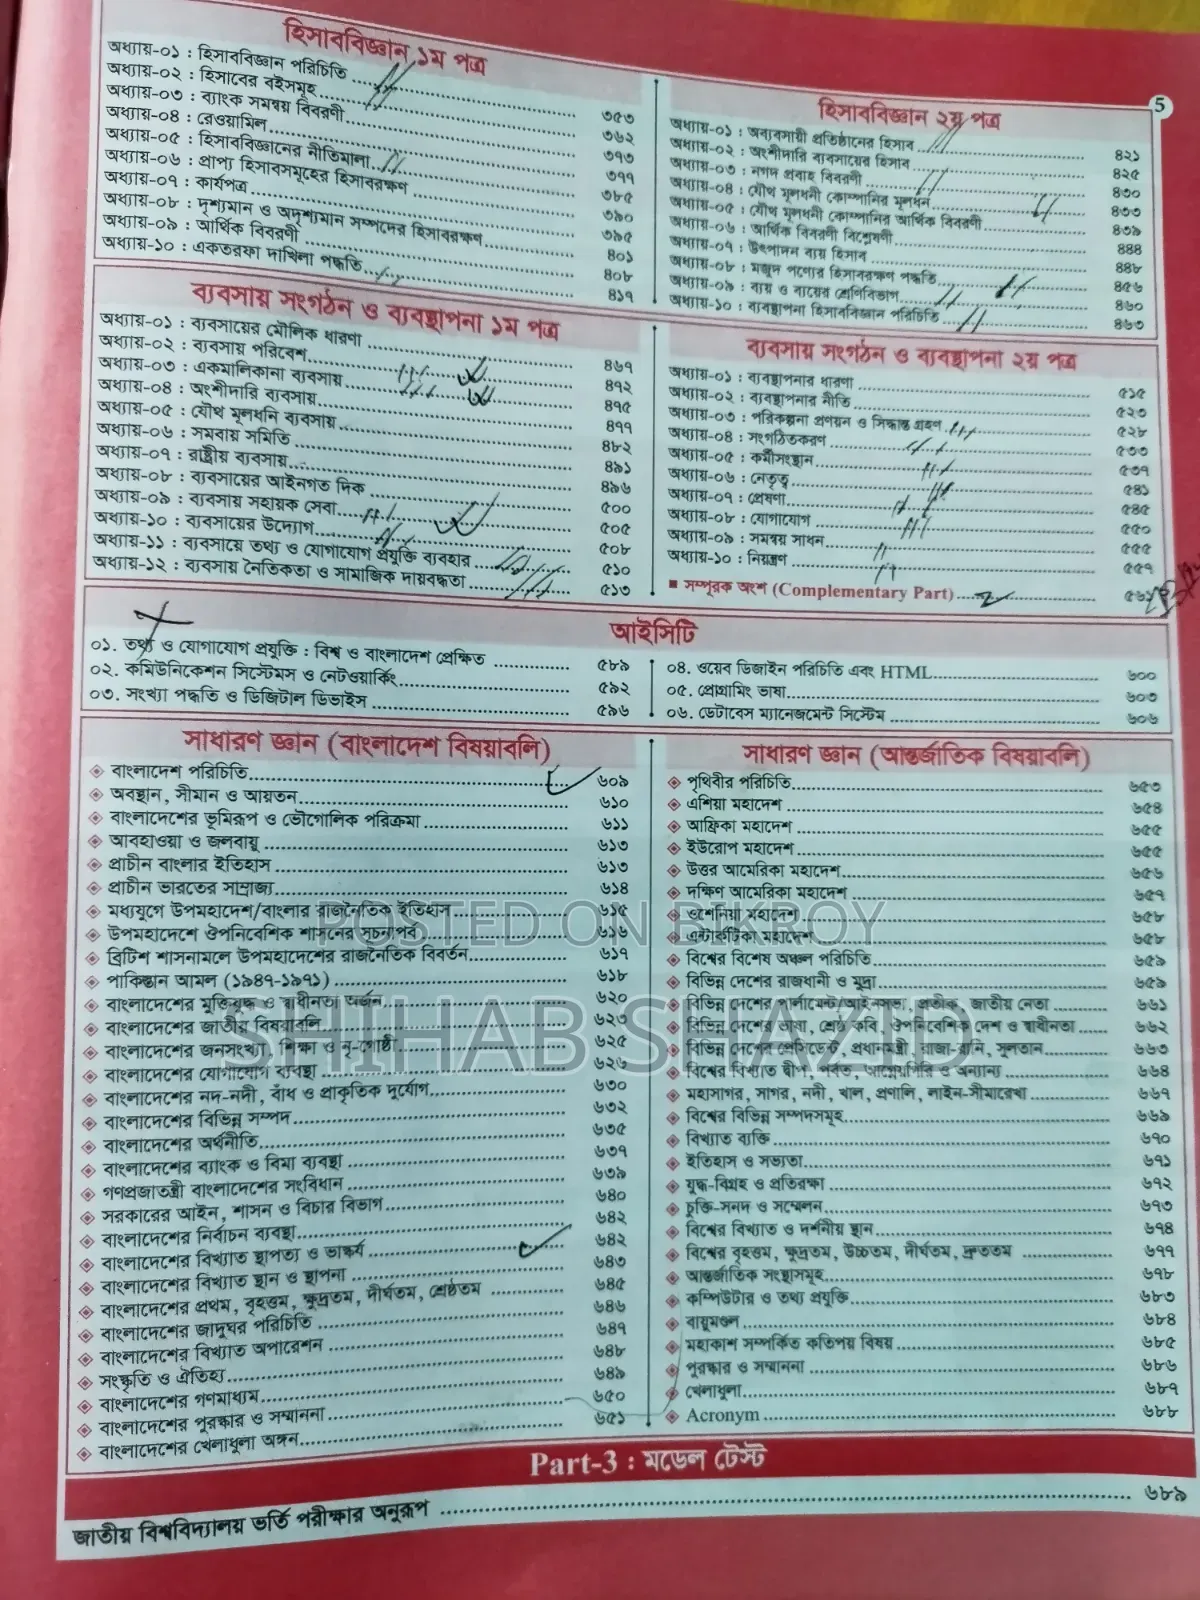 5
হিসাববিজ্ঞান ১ম পত্র
অধ্যায়-০১ : হিসাববিজ্ঞান পরিচিতি ৩৫৩
অধ্যায়-০২ : হিসাবের বইসমূহ ৩৬২
অধ্যায়-০৩ : ব্যাংক সমন্বয় বিবরণী ৩৭৩
অধ্যায়-০৪ : রেওয়ামিল ৩৭৭
অধ্যায়-০৫ : হিসাববিজ্ঞানের নীতিমালা ৩৮৫
অধ্যায়-০৬ : প্রাপ্য হিসাবসমূহের হিসাবরক্ষণ ৩৯০
অধ্যায়-০৭ : কার্যপত্র ৩৯৫
অধ্যায়-০৮ : দৃশ্যমান ও অদৃশ্যমান সম্পদের হিসাবরক্ষণ ৪০১
অধ্যায়-০৯ : আর্থিক বিবরণী ৪০৮
অধ্যায়-১০ : একতরফা দাখিলা পদ্ধতি ৪১৭
হিসাববিজ্ঞান ২য় পত্র
অধ্যায়-০১ : অব্যবসায়ী প্রতিষ্ঠানের হিসাব ৪২১
অধ্যায়-০২ : অংশীদারি ব্যবসায়ের হিসাব ৪২৫
অধ্যায়-০৩ : নগদ প্রবাহ বিবরণী ৪৩০
অধ্যায়-০৪ : যৌথ মূলধনী কোম্পানির মূলধন ৪৩৩
অধ্যায়-০৫ : যৌথ মূলধনী কোম্পানির আর্থিক বিবরণী ৪৩৯
অধ্যায়-০৬ : আর্থিক বিবরণী বিশ্লেষণী ৪৪৪
অধ্যায়-০৭ : উৎপাদন ব্যয় হিসাব ৪৪৮
অধ্যায়-০৮ : মজুদ পণ্যের হিসাবরক্ষণ পদ্ধতি ৪৫৬
অধ্যায়-০৯ : ব্যয় ও ব্যয়ের শ্রেণিবিভাগ ৪৬০
অধ্যায়-১০ : ব্যবস্থাপনা হিসাববিজ্ঞান পরিচিতি ৪৬৩
ব্যবসায় সংগঠন ও ব্যবস্থাপনা ১ম পত্র
অধ্যায়-০১ : ব্যবসায়ের মৌলিক ধারণা ৪৬৭
অধ্যায়-০২ : ব্যবসায় পরিবেশ ৪৭২
অধ্যায়-০৩ : একমালিকানা ব্যবসায় ৪৭৫
অধ্যায়-০৪ : অংশীদারি ব্যবসায় ৪৭৭
অধ্যায়-০৫ : যৌথ মূলধনি ব্যবসায় ৪৮২
অধ্যায়-০৬ : সমবায় সমিতি ৪৯১
অধ্যায়-০৭ : রাষ্ট্রীয় ব্যবসায় ৪৯৬
অধ্যায়-০৮ : ব্যবসায়ের আইনগত দিক ৫০০
অধ্যায়-০৯ : ব্যবসায় সহায়ক সেবা ৫০৫
অধ্যায়-১০ : ব্যবসায়ের উদ্যোগ ৫০৮
অধ্যায়-১১ : ব্যবসায়ে তথ্য ও যোগাযোগ প্রযুক্তি ব্যবহার ৫১০
অধ্যায়-১২ : ব্যবসায় নৈতিকতা ও সামাজিক দায়বদ্ধতা ৫১৩
ব্যবসায় সংগঠন ও ব্যবস্থাপনা ২য় পত্র
অধ্যায়-০১ : ব্যবস্থাপনার ধারণা ৫১৫
অধ্যায়-০২ : ব্যবস্থাপনার নীতি ৫২৩
অধ্যায়-০৩ : পরিকল্পনা প্রণয়ন ও সিদ্ধান্ত গ্রহণ ৫২৮
অধ্যায়-০৪ : সংগঠিতকরণ ৫৩৩
অধ্যায়-০৫ : কর্মীসংস্থান ৫৩৭
অধ্যায়-০৬ : নেতৃত্ব ৫৪১
অধ্যায়-০৭ : প্রেষণা ৫৪৫
অধ্যায়-০৮ : যোগাযোগ ৫৫০
অধ্যায়-০৯ : সমন্বয় সাধন ৫৫৫
অধ্যায়-১০ : নিয়ন্ত্রণ ৫৫৭
■ সম্পূরক অংশ (Complementary Part)
আইসিটি
০১. তথ্য ও যোগাযোগ প্রযুক্তি : বিশ্ব ও বাংলাদেশ প্রেক্ষিত ৫৮৯
০২. কমিউনিকেশন সিস্টেমস ও নেটওয়ার্কিং ৫৯২
০৩. সংখ্যা পদ্ধতি ও ডিজিটাল ডিভাইস ৫৯৬
০৪. ওয়েব ডিজাইন পরিচিতি এবং HTML ৬০০
০৫. প্রোগ্রামিং ভাষা ৬০৩
০৬. ডেটাবেস ম্যানেজমেন্ট সিস্টেম ৬০৬
সাধারণ জ্ঞান (বাংলাদেশ বিষয়াবলি)
বাংলাদেশ পরিচিতি ৬০৯
অবস্থান, সীমান ও আয়তন ৬১০
বাংলাদেশের ভূমিরূপ ও ভৌগোলিক পরিক্রমা ৬১১
আবহাওয়া ও জলবায়ু ৬১৩
প্রাচীন বাংলার ইতিহাস ৬১৩
প্রাচীন ভারতের সাম্রাজ্য ৬১৪
মধ্যযুগে উপমহাদেশ/বাংলার রাজনৈতিক ইতিহাস ৬১৫
উপমহাদেশে ঔপনিবেশিক শাসনের সূচনাপর্ব ৬১৬
ব্রিটিশ শাসনামলে উপমহাদেশের রাজনৈতিক বিবর্তন ৬১৭
পাকিস্তান আমল (১৯৪৭-১৯৭১) ৬১৮
বাংলাদেশের মুক্তিযুদ্ধ ও স্বাধীনতা অর্জন ৬২০
বাংলাদেশের জাতীয় বিষয়াবলি ৬২৩
বাংলাদেশের জনসংখ্যা, শিক্ষা ও নৃ-গোষ্ঠী ৬২৫
বাংলাদেশের যোগাযোগ ব্যবস্থা ৬২৬
বাংলাদেশের নদ-নদী, বাঁধ ও প্রাকৃতিক দুর্যোগ ৬৩০
বাংলাদেশের বিভিন্ন সম্পদ ৬৩২
বাংলাদেশের অর্থনীতি ৬৩৫
বাংলাদেশের ব্যাংক ও বিমা ব্যবস্থা ৬৩৭
গণপ্রজাতন্ত্রী বাংলাদেশের সংবিধান ৬৩৯
সরকারের আইন, শাসন ও বিচার বিভাগ ৬৪০
বাংলাদেশের নির্বাচন ব্যবস্থা ৬৪২
বাংলাদেশের বিখ্যাত স্থাপত্য ও ভাস্কর্য ৬৪২
বাংলাদেশের বিখ্যাত স্থান ও স্থাপনা ৬৪৩
বাংলাদেশের প্রথম, বৃহত্তম, ক্ষুদ্রতম, দীর্ঘতম, শ্রেষ্ঠতম ৬৪৫
বাংলাদেশের জাদুঘর পরিচিতি ৬৪৬
বাংলাদেশের বিখ্যাত অপারেশন ৬৪৭
সংস্কৃতি ও ঐতিহ্য ৬৪৮
বাংলাদেশের গণমাধ্যম ৬৪৯
বাংলাদেশের পুরস্কার ও সম্মাননা ৬৫০
বাংলাদেশের খেলাধুলা অঙ্গন ৬৫১
সাধারণ জ্ঞান (আন্তর্জাতিক বিষয়াবলি)
পৃথিবীর পরিচিতি ৬৫৩
এশিয়া মহাদেশ ৬৫৪
আফ্রিকা মহাদেশ ৬৫৫
ইউরোপ মহাদেশ ৬৫৫
উত্তর আমেরিকা মহাদেশ ৬৫৬
দক্ষিণ আমেরিকা মহাদেশ ৬৫৭
ওশেনিয়া মহাদেশ ৬৫৮
এন্টার্কটিকা মহাদেশ ৬৫৮
বিশ্বের বিশেষ অঞ্চল পরিচিতি ৬৫৯
বিভিন্ন দেশের রাজধানী ও মুদ্রা ৬৫৯
বিভিন্ন দেশের পার্লামেন্ট/আইনসভা, প্রতীক, জাতীয় নেতা ৬৬১
বিভিন্ন দেশের ভাষা, শ্রেষ্ঠ কবি, ঔপনিবেশিক দেশ ও স্বাধীনতা ৬৬২
বিভিন্ন দেশের প্রেসিডেন্ট, প্রধানমন্ত্রী, রাজা-রানি, সুলতান ৬৬৩
বিশ্বের বিখ্যাত দ্বীপ, পর্বত, আগ্নেয়গিরি ও অন্যান্য ৬৬৪
মহাসাগর, সাগর, নদী, খাল, প্রণালি, লাইন-সীমারেখা ৬৬৭
বিশ্বের বিভিন্ন সম্পদসমূহ ৬৬৯
বিখ্যাত ব্যক্তি ৬৭০
ইতিহাস ও সভ্যতা ৬৭১
যুদ্ধ-বিগ্রহ ও প্রতিরক্ষা ৬৭২
চুক্তি-সনদ ও সম্মেলন ৬৭৩
বিশ্বের বিখ্যাত ও দর্শনীয় স্থান ৬৭৪
বিশ্বের বৃহত্তম, ক্ষুদ্রতম, উচ্চতম, দীর্ঘতম, দ্রুততম ৬৭৭
আন্তর্জাতিক সংস্থাসমূহ ৬৭৮
কম্পিউটার ও তথ্য প্রযুক্তি ৬৮৩
বায়ুমণ্ডল ৬৮৪
মহাকাশ সম্পর্কিত কতিপয় বিষয় ৬৮৫
পুরস্কার ও সম্মাননা ৬৮৬
খেলাধুলা ৬৮৭
Acronym ৬৮৮
POSTED ON BIKROY
SHIHAB SHAZID
Part-3 : মডেল টেস্ট
জাতীয় বিশ্ববিদ্যালয় ভর্তি পরীক্ষার অনুরূপ ৬৮৯